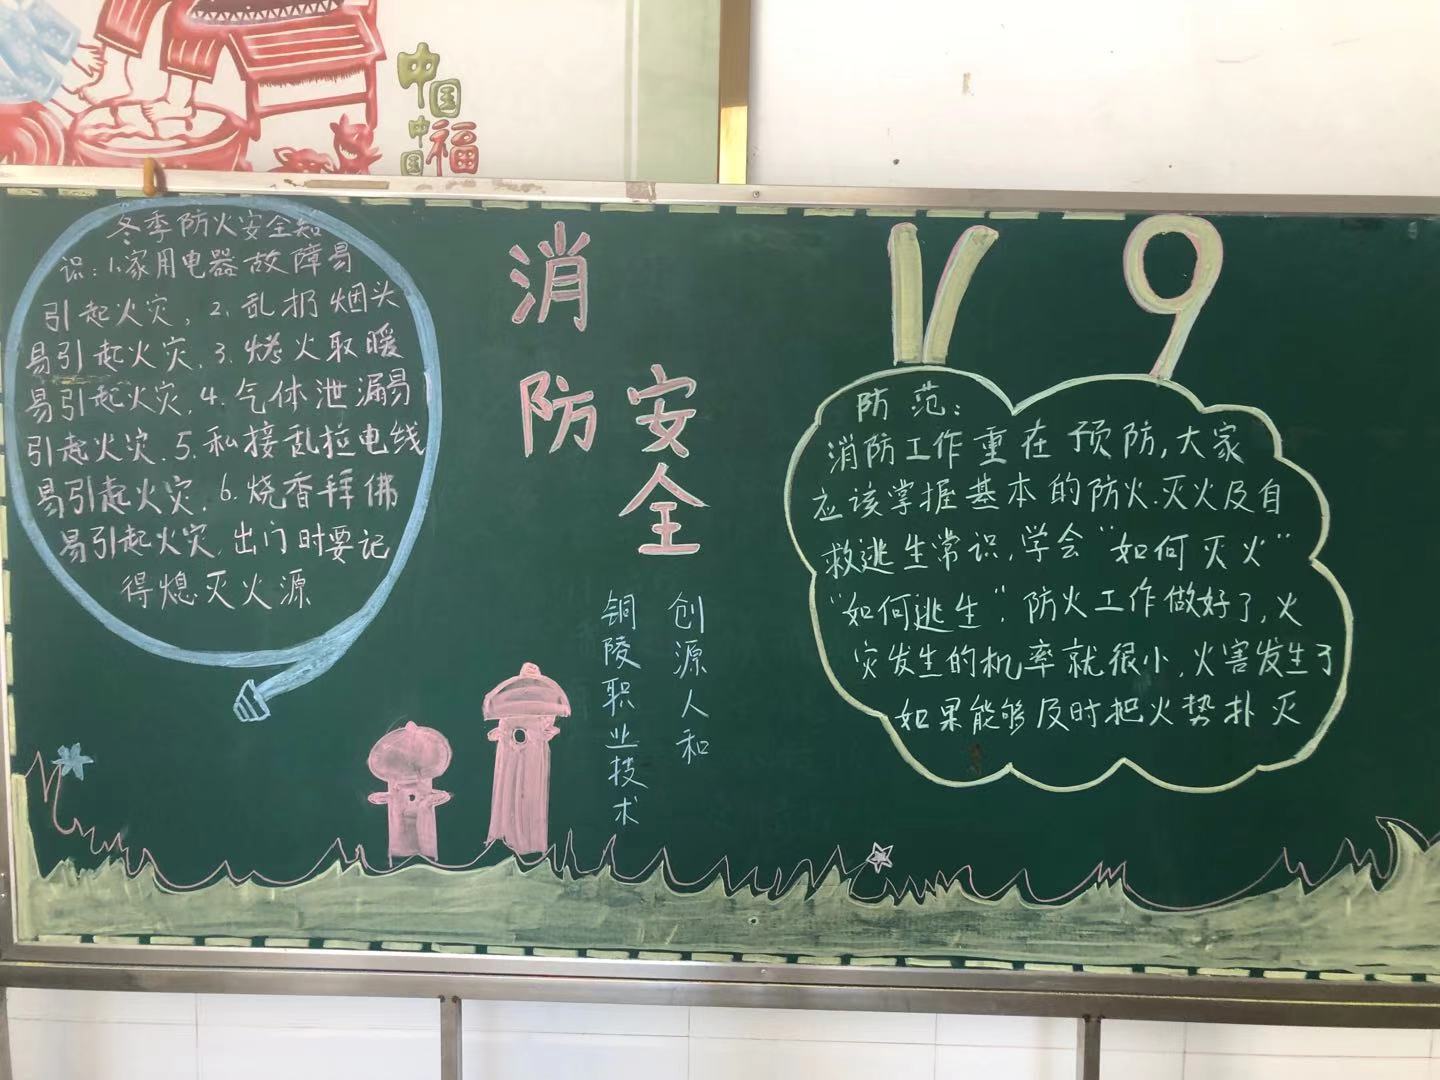 中国
中国福
冬季防火安全知
识：1.家用电器故障易
引起火灾，2.乱扔烟头
易引起火灾，3.烤火取暖
易引起火灾，4.气体泄漏易
引起火灾．5.私接乱拉电线
易引起火灾．6.烧香拜佛
易引起火灾，出门时要记
得熄灭火源
消
防
安
全
创源人和
铜陵职业技术
119
防范：
消防工作重在预防，大家
应该掌握基本的防火．灭火及自
救逃生常识，学会“如何灭火”
“如何逃生”．防火工作做好了，火
灾发生的机率就很小，火害发生了
如果能够及时把火势扑灭